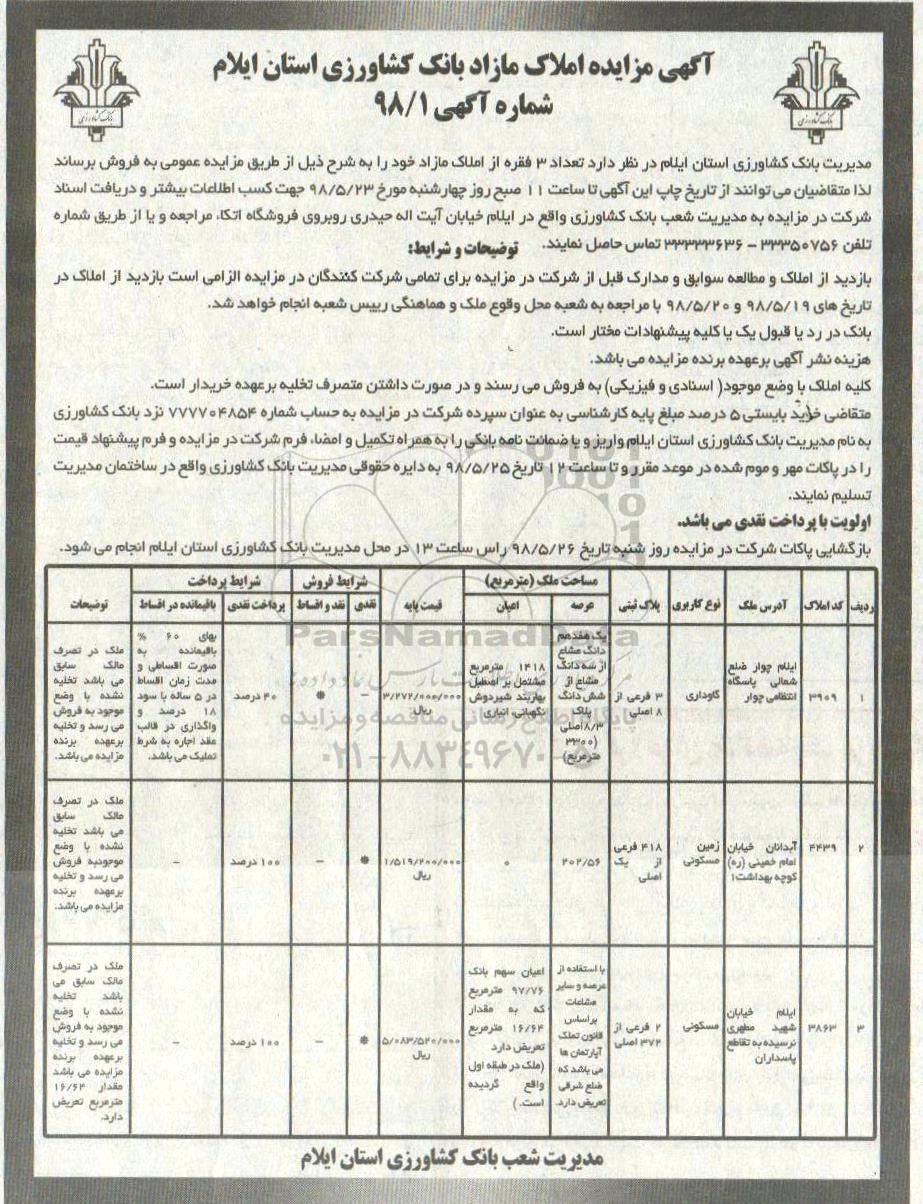 آگهی مزایده املاک مازاد بانک کشاورزی استان ایلام
شماره آگهی ۹۸/۱
بانک کشاورزی
بانک کشاورزی
مدیریت بانک کشاورزی استان ایلام در نظر دارد تعداد ۳ فقره از املاک مازاد خود را به شرح ذیل از طریق مزایده عمومی به فروش برساند
لذا متقاضیان می توانند از تاریخ چاپ این آگهی تا ساعت ۱۱ صبح روز چهارشنبه مورخ ۹۸/۵/۲۳ جهت کسب اطلاعات بیشتر و دریافت اسناد
شرکت در مزایده به مدیریت شعب بانک کشاورزی واقع در ایلام خیابان آیت اله حیدری روبروی فروشگاه اتکا، مراجعه و یا از طریق شماره
تلفن ۳۳۳۵۰۷۵۶ – ۳۳۳۳۳۶۳۶ تماس حاصل نمایند.
توضیحات و شرایط:
بازدید از املاک و مطالعه سوابق و مدارک قبل از شرکت در مزایده برای تمامی شرکت کنندگان در مزایده الزامی است بازدید از املاک در
تاریخ های ۹۸/۵/۱۹ و ۹۸/۵/۲۰ با مراجعه به شعبه محل وقوع ملک و هماهنگی رییس شعبه انجام خواهد شد.
بانک در رد یا قبول یک یا کلیه پیشنهادات مختار است.
هزینه نشر آگهی برعهده برنده مزایده می باشد.
کلیه املاک با وضع موجود( اسنادی و فیزیکی) به فروش می رسند و در صورت داشتن متصرف تخلیه برعهده خریدار است.
متقاضی خرید بایستی ۵ درصد مبلغ پایه کارشناسی به عنوان سپرده شرکت در مزایده به حساب شماره ۷۷۷۷۰۴۸۵۴ نزد بانک کشاورزی
به نام مدیریت بانک کشاورزی استان ایلام واریز و یا ضمانت نامه بانکی را به همراه تکمیل و امضاء فرم شرکت در مزایده و فرم پیشنهاد قیمت
را در پاکات مهر و موم شده در موعد مقرر و تا ساعت ۱۲ تاریخ ۹۸/۵/۲۵ به دایره حقوقی مدیریت بانک کشاورزی واقع در ساختمان مدیریت
تسلیم نمایند.
اولویت با پرداخت نقدی می باشد.
بازگشایی پاکات شرکت در مزایده روز شنبه تاریخ ۹۸/۵/۲۶ راس ساعت ۱۳ در محل مدیریت بانک کشاورزی استان ایلام انجام می شود.
ردیف کد املاک آدرس ملک نوع کاربری پلاک ثبتی مساحت ملک (مترمربع) قیمت پایه شرایط فروش شرایط پرداخت توضیحات
عرصه اعیان نقدی نقد و اقساط پرداخت نقدی باقیمانده در اقساط
۱
۳۹۰۹
ایلام چوار ضلع
شمالی پاسگاه
انتظامی چوار
گاوداری
۳ فرعی از
۸ اصلی
یک هفدهم
دانگ مشاع
از سه دانگ
مشاع از
شش دانگ
پلاک
۸/۳اصلی
(۳۳۰۰
مترمربع)
۱۴۱۸ مترمربع
مشتمل بر اصطبل
بهاربند شیردوش
نگهبانی، انباری
۳/۲۷۲/۰۰۰/۰۰۰
ریال
–
*
۴۰ درصد
بهای ۶۰ %
باقیمانده به
صورت اقساطی و
مدت زمان اقساط
در ۵ ساله با سود
۱۸ درصد و
واگذاری در قالب
عقد اجاره به شرط
تملیک می باشد.
ملک در تصرف
مالک سابق
می باشد تخلیه
نشده با وضع
موجود به فروش
می رسد و تخلیه
برعهده برنده
مزایده می باشد.
۲
۴۴۳۹
آبدانان خیابان
امام خمینی (ره)
کوچه بهداشت۱
زمین
مسکونی
۴۱۸ فرعی
از یک
اصلی
۲۰۲/۵۶
۰
۱/۵۱۹/۲۰۰/۰۰۰
ریال
*
–
۱۰۰ درصد
–
ملک در تصرف
مالک سابق
می باشد تخلیه
نشده با وضع
موجودبه فروش
می رسد و تخلیه
برعهده برنده
مزایده می باشد.
۳
۳۸۶۳
ایلام خیابان
شهید مطهری
نرسیده به تقاطع
پاسداران
مسکونی
۲ فرعی از
۳۷۲ اصلی
با استفاده از
عرصه و سایر
مشاعات
براساس
قانون تملک
آپارتمان ها
می باشد که
ضلع شرقی
تعریض دارد.
اعیان سهم بانک
۹۷/۷۶ مترمربع
که به مقدار
۱۶/۶۴ مترمربع
تعریض دارد
(ملک در طبقه اول
واقع گردیده
است.)
۵/۰۸۳/۵۲۰/۰۰۰
ریال
*
–
۱۰۰ درصد
–
ملک در تصرف
مالک سابق می
باشد تخلیه
نشده با وضع
موجود به فروش
می رسد و تخلیه
برعهده برنده
مزایده می باشد
مقدار ۱۶/۶۴
مترمربع تعریض
دارد.
ParsNamadData
پایگاه اطلاع رسانی مناقصه و مزایده
۰۲۱-۸۸۳۴۹۶۷۰-۵
مدیریت شعب بانک کشاورزی استان ایلام